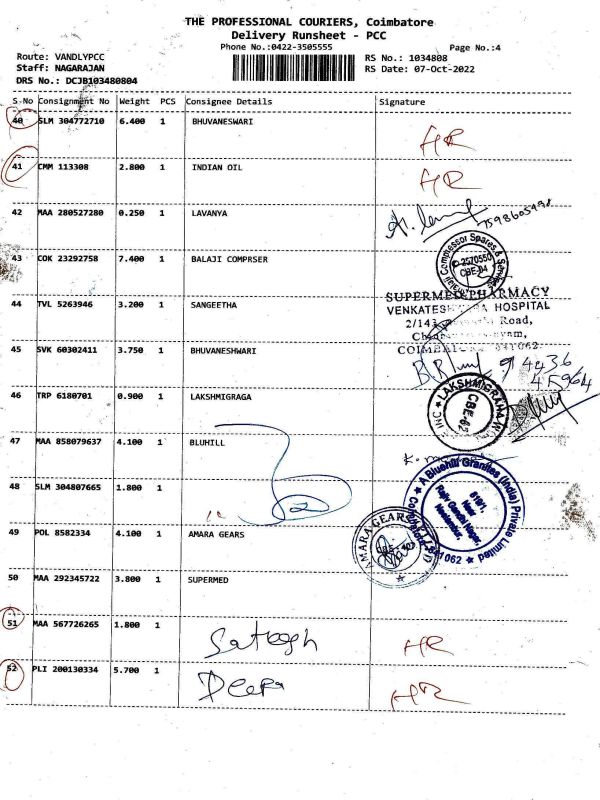 THE PROFESSIONAL COURIERS, Coimbatore
Delivery Runsheet - PCC
Phone No.:0422-3505555
Page No.:4
Route: VANDLYPCC
RS No.: 1034808
Staff: NAGARAJAN
RS Date: 07-Oct-2022
DRS No.: DCJB103480804
S-No Consignment No Weight PCS Consignee Details Signature
40 SLM 304772710 6.400 1 BHUVANESWARI HR
41 CMM 113308 2.800 1 INDIAN OIL HR
42 MAA 280527280 0.250 1 LAVANYA
43 COK 23292758 7.400 1 BALAJI COMPRSER
Compressor Spares & Services
2570550
CBE-04
44 TVL 5263946 3.200 1 SANGEETHA
SUPERMED PHARMACY
HOSPITAL
Road,
45 SVK 60302411 3.750 1 BHUVANESHWARI
94436
45964
46 TRP 6180701 0.900 1 LAKSHMIGRAGA
47 MAA 858079637 4.100 1 BLUHILL
A Bluehill Granites (India) Private Limited
48 SLM 304807665 1.800 1
49 POL 8582334 4.100 1 AMARA GEARS
AMARA GEARS
50 MAA 292345722 3.800 1 SUPERMED
51 MAA 567726265 1.800 1 HR
52 PLI 200130334 5.700 1 Deepa HR